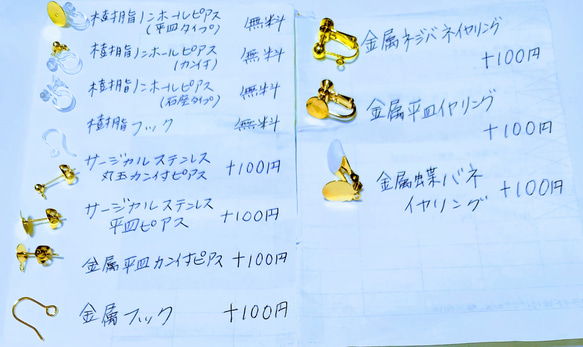 樹脂ノンホールピアス
(平皿タイプ) 無料
樹脂ノンホールピアス
(カン付) 無料
樹脂ノンホールピアス
(石座タイプ) 無料
樹脂フック 無料
サージカルステンレス
丸玉カン付ピアス +100円
サージカルステンレス
平皿ピアス +100円
金属平皿カン付ピアス +100円
金属フック +100円
金属ネジバネイヤリング
+100円
金属平皿イヤリング
+100円
金属蝶バネ
イヤリング +100円